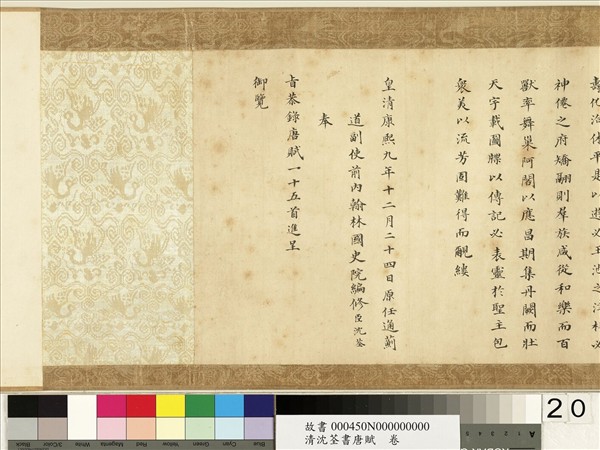 神僊之府矯翮則羣族咸從和樂而百
獸率舞巢阿閣以應昌期集丹闕而壯
天宇載圖牒以傳記必表靈於聖主包
衆美以流芳固難得而覼縷
皇清康熙九年十二月二十四日原任通薊
道副使前內翰林國史院編修臣沈荃
奉
旨恭錄唐賦一十五首進呈
御覽
20
Black
3/Color
White
Magenta
Red
Yellow
Green
Cyan
Blue
A
故書 000450N000000000
清沈荃書唐賦 卷